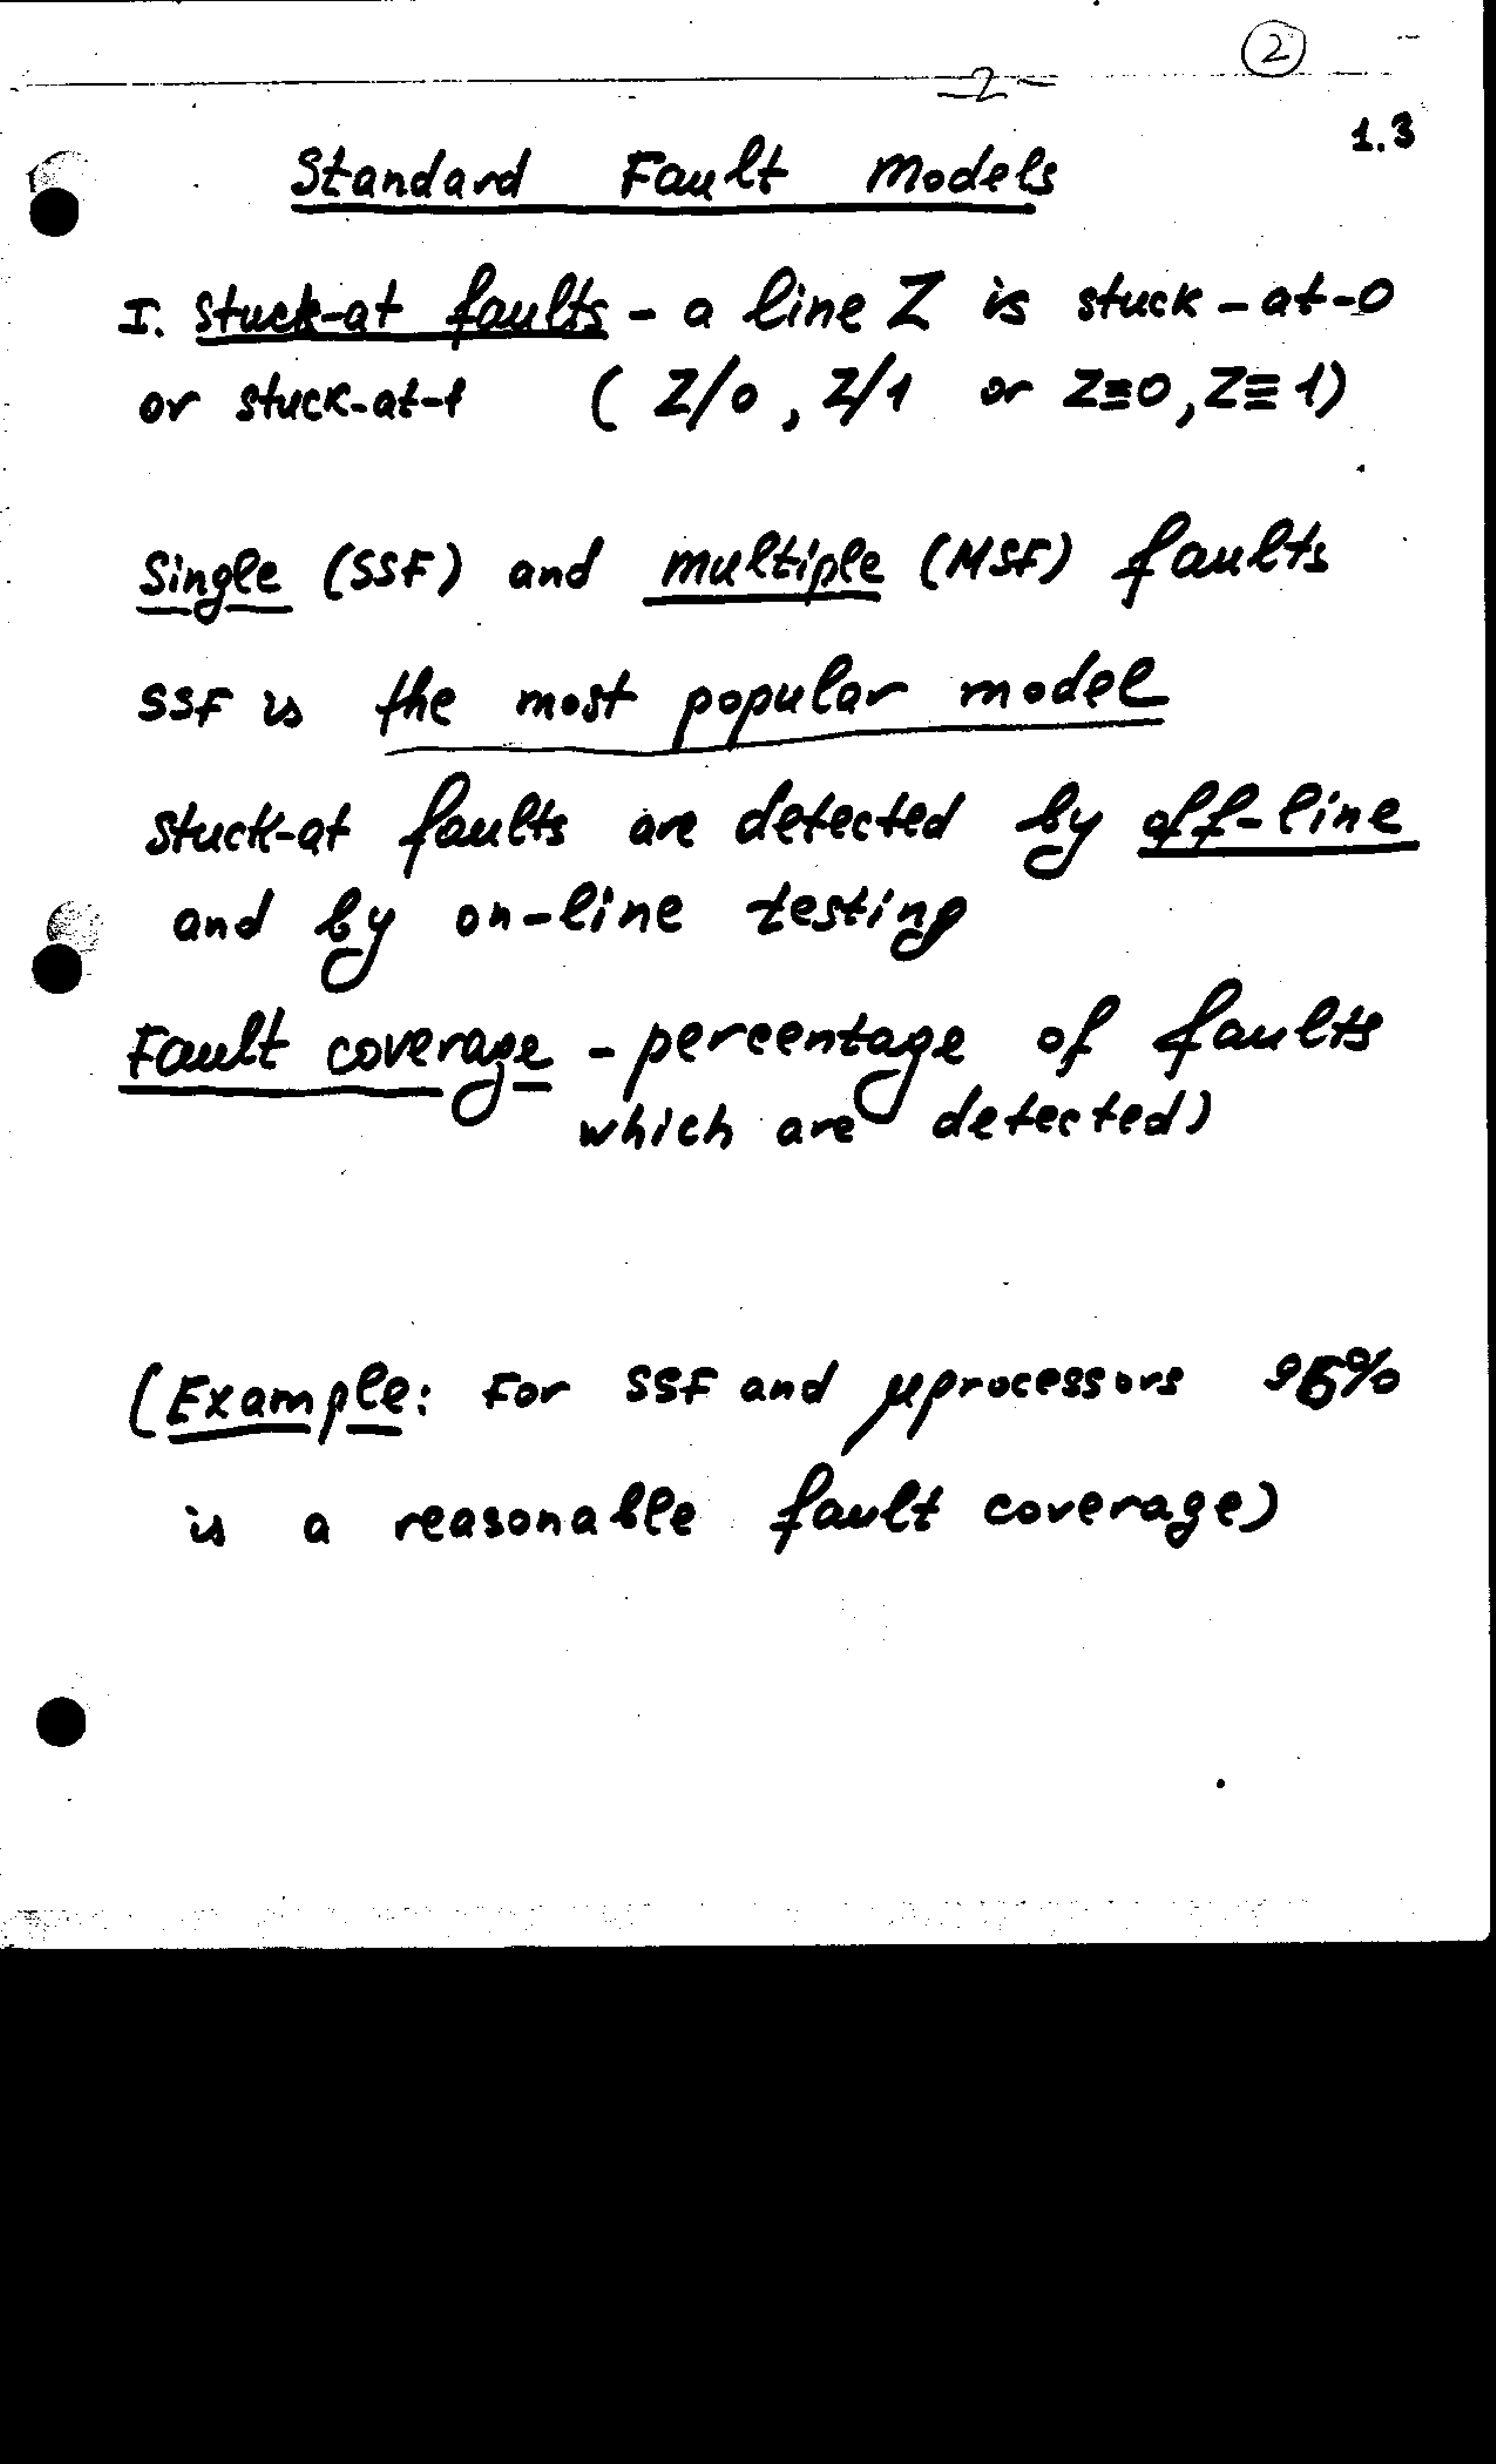 2
-2-
1.3
Standard Fault Models
I. Stuck-at faults - a line Z is stuck-at-0
or stuck-at-1 ( Z/0, Z/1 or Z≡0, Z≡1)
Single (SSF) and multiple (MSF) faults
SSF is the most popular model
Stuck-at faults are detected by off-line
and by on-line testing
Fault coverage - percentage of faults
which are detected)
(Example: For SSF and μprocessors
is a reasonable fault coverage)